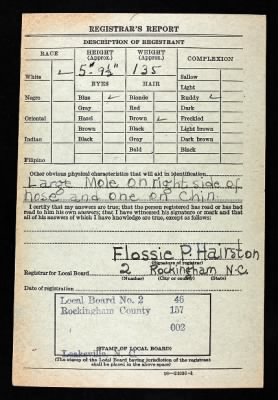 REGISTRAR'S REPORT
DESCRIPTION OF REGISTRANT
RACE HEIGHT (Approx.) WEIGHT (Approx.) COMPLEXION
5' 9½" 135
White ✓ Sallow
EYES HAIR Light
Negro Blue ✓ Blonde Ruddy ✓
Gray Red Dark
Oriental Hazel Brown ✓ Freckled
Brown Black Light brown
Indian Black Gray Dark brown
Bald Black
Filipino
Other obvious physical characteristics that will aid in identification
Large Mole on right side of
nose and one on Chin
I certify that my answers are true; that the person registered has read or has had
read to him his own answers; that I have witnessed his signature or mark and that
all of his answers of which I have knowledge are true, except as follows:
Flossie P. Hairston
(Signature of registrar)
Registrar for Local Board 2 Rockingham N.C.
(Number) (City or county) (State)
Date of registration
Local Board No. 2 46
Rockingham County 157
002
Leaksville, N. C.
(STAMP OF LOCAL BOARD)
(The stamp of the Local Board having jurisdiction of the registrant
shall be placed in the above space)